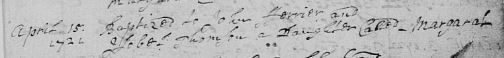 April 15. Baptized to John Ferrier and
1721 Isobel Thomson a Daughter Called Margarat